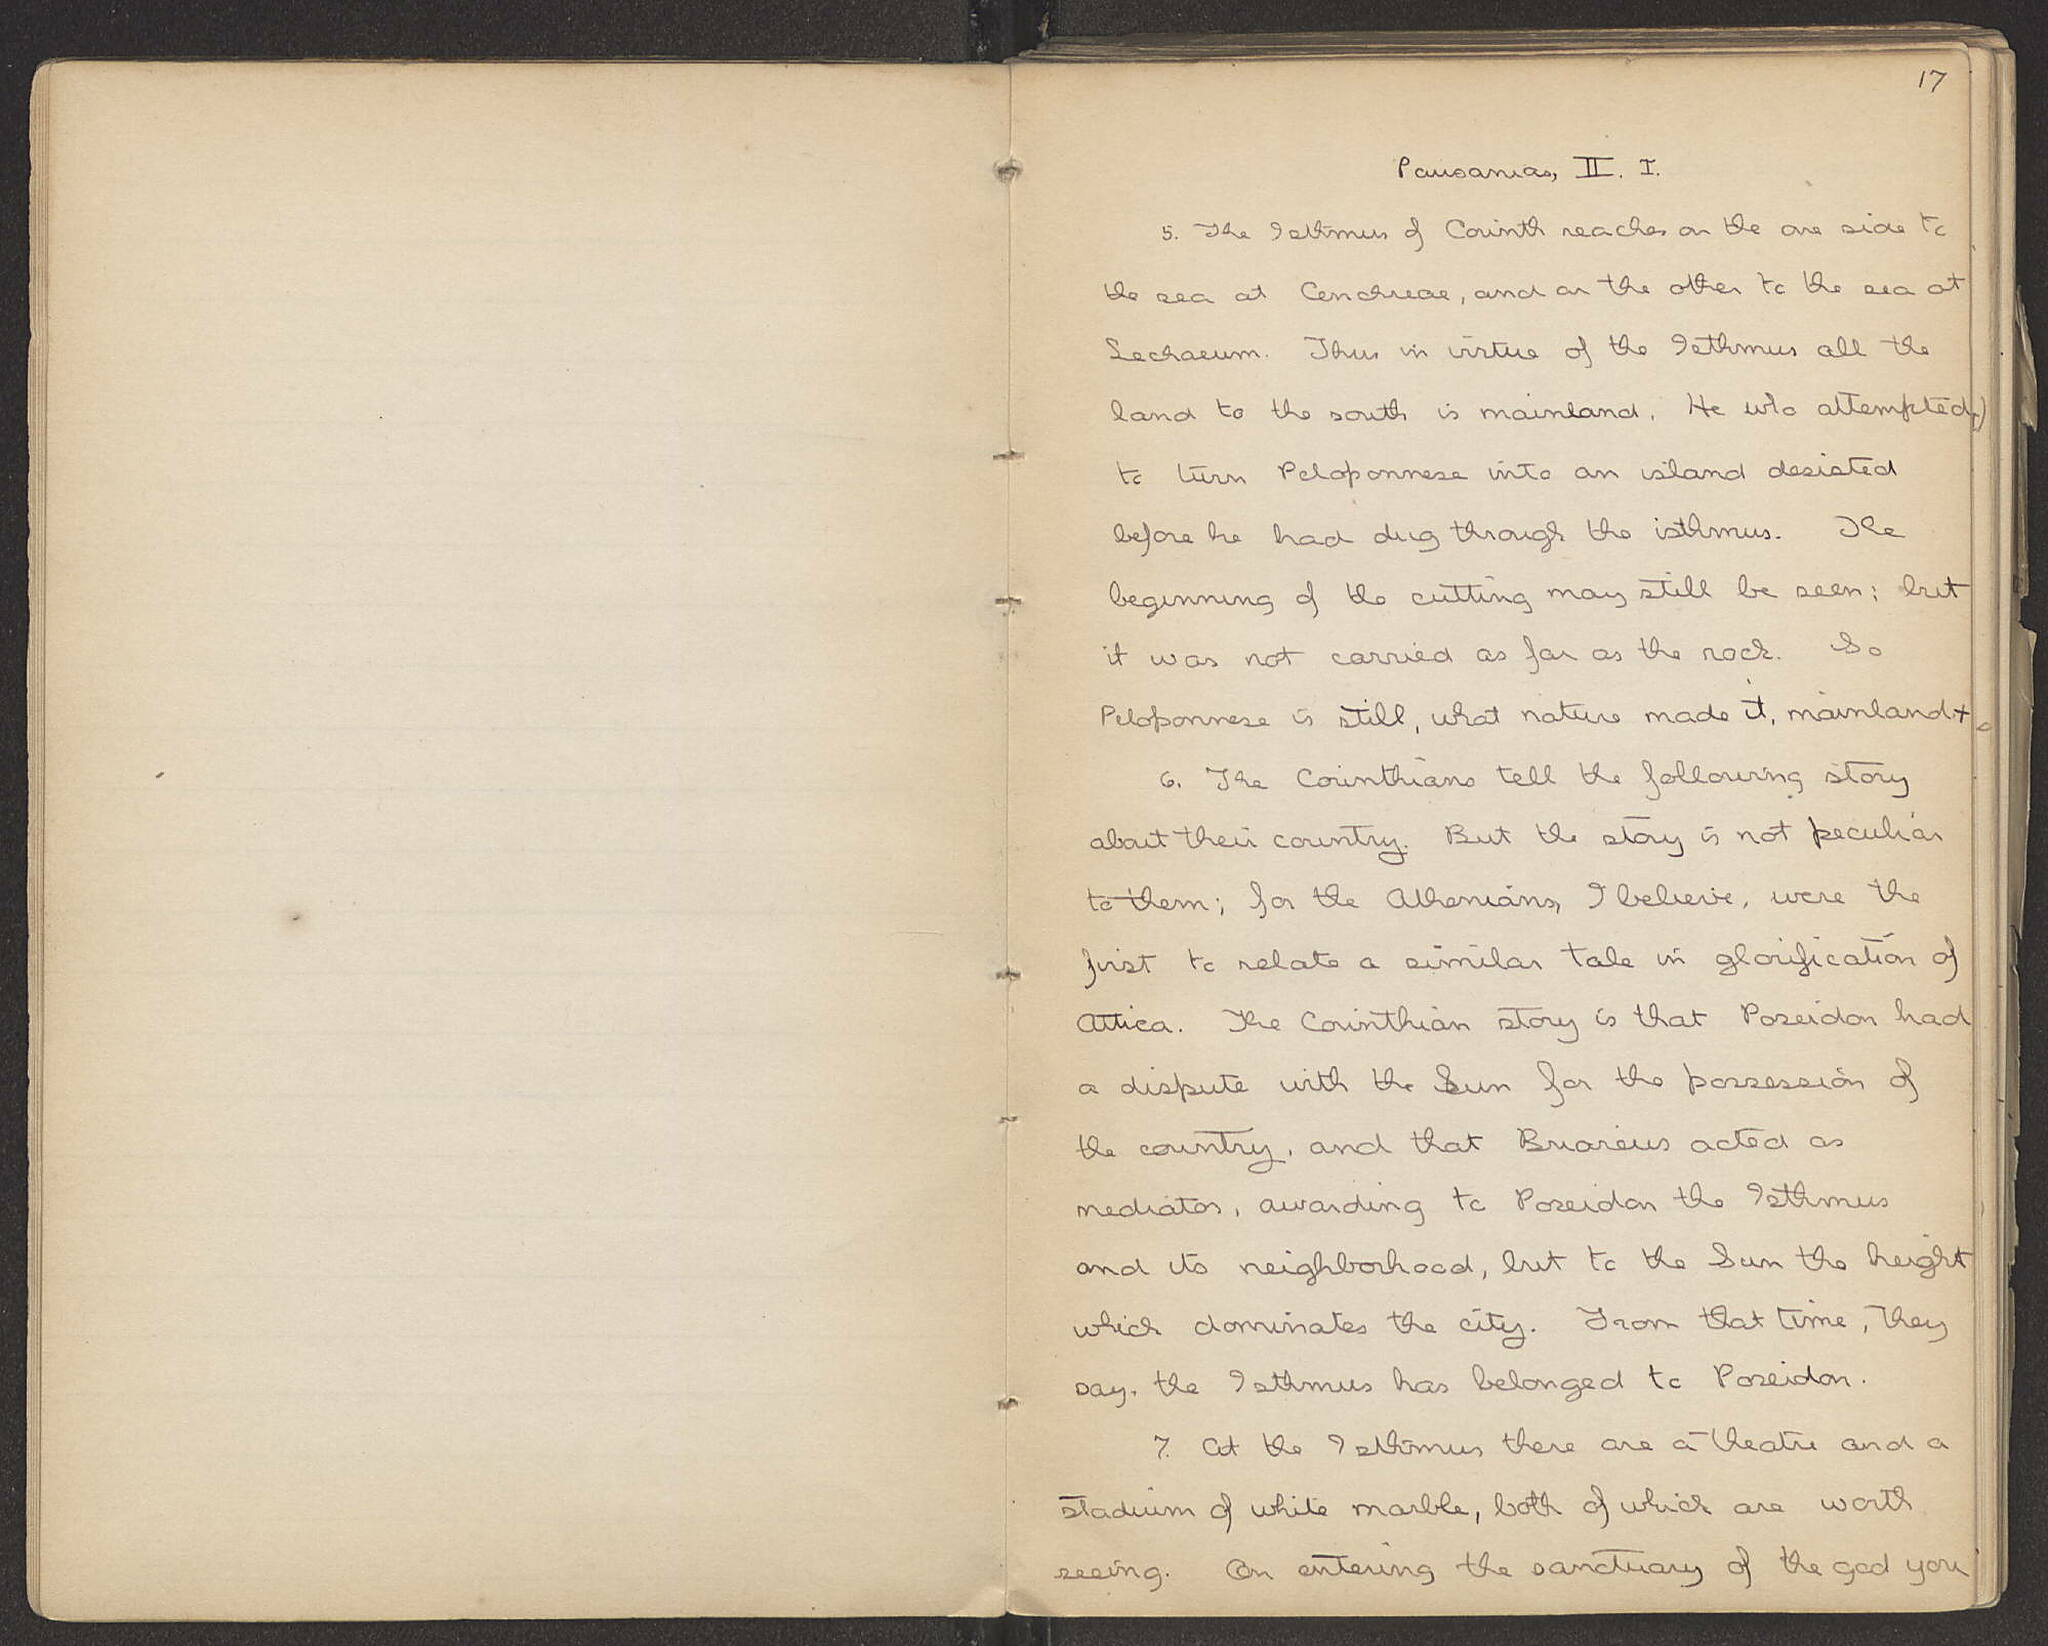 17
Pausanias, II. I.
5. The Isthmus of Corinth reaches on the one side to
the sea at Cenchreae, and on the other to the sea at
Lechaeum. Thus in virtue of the Isthmus all the
land to the south is mainland. He who attempted
to turn Peloponnese into an island desisted
before he had dug through the isthmus. The
beginning of the cutting may still be seen; but
it was not carried as far as the rock. So
Peloponnese is still, what nature made it, mainland +
6. The Corinthians tell the following story
about their country. But the story is not peculiar
to them; for the Athenians, I believe, were the
first to relate a similar tale in glorification of
Attica. The Corinthian story is that Poseidon had
a dispute with the Sun for the possession of
the country, and that Briareus acted as
mediator, awarding to Poseidon the Isthmus
and its neighborhood, but to the Sun the height
which dominates the city. From that time, they
say, the Isthmus has belonged to Poseidon.
7. At the Isthmus there are a theatre and a
stadium of white marble, both of which are worth
seeing. On entering the sanctuary of the god you